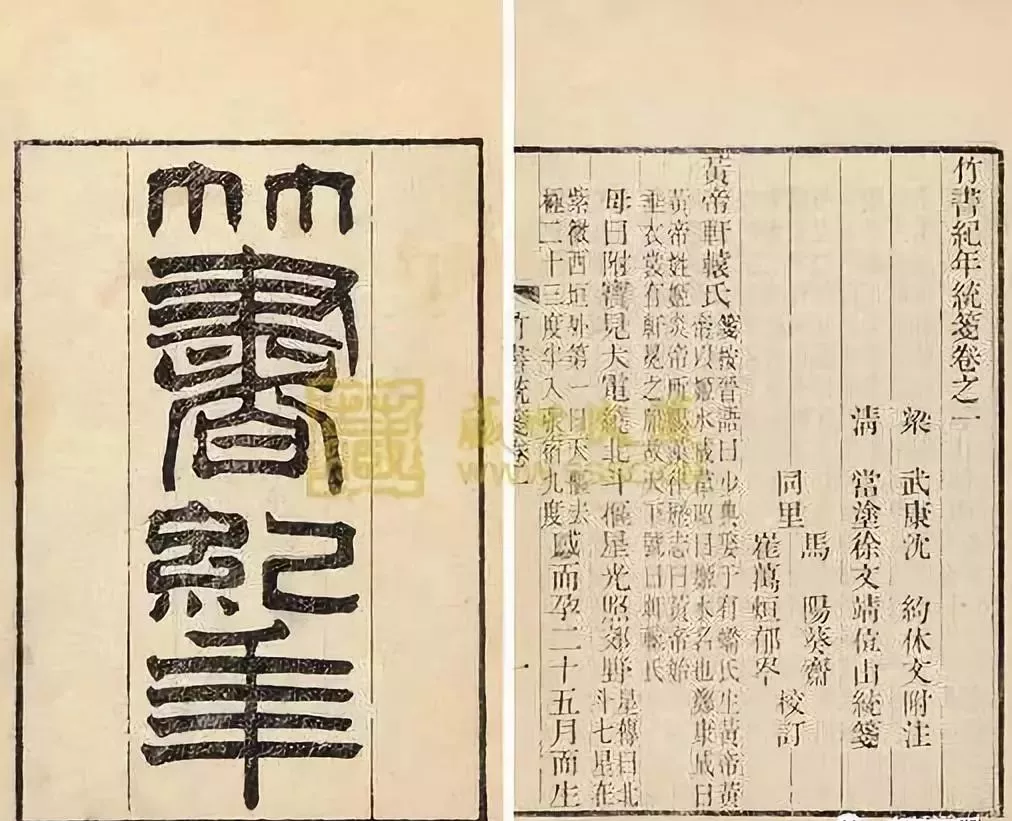 竹書紀年
竹書紀年統箋卷之一
梁 武康沈 約休文附注
清 當塗徐文靖位山統箋
馬 陽葵齋
同里 校訂
崔萬烜郁岑
黃帝軒轅氏 箋按晉語曰少典娶于有蟜氏生黃帝黃
帝以姬水成韋昭曰姬水名也鄭康成曰
黃帝姓姬炎帝所賜漢律歷志曰黃帝始
垂衣裳有軒冕之服故天下號曰軒轅氏
母曰附寶見大電繞北斗樞星光照郊野 星傳曰北
斗七星在
紫微西垣外第一曰天樞去
極二十三度半入張宿九度 感而孕二十五月而生
竹書統箋卷一
一